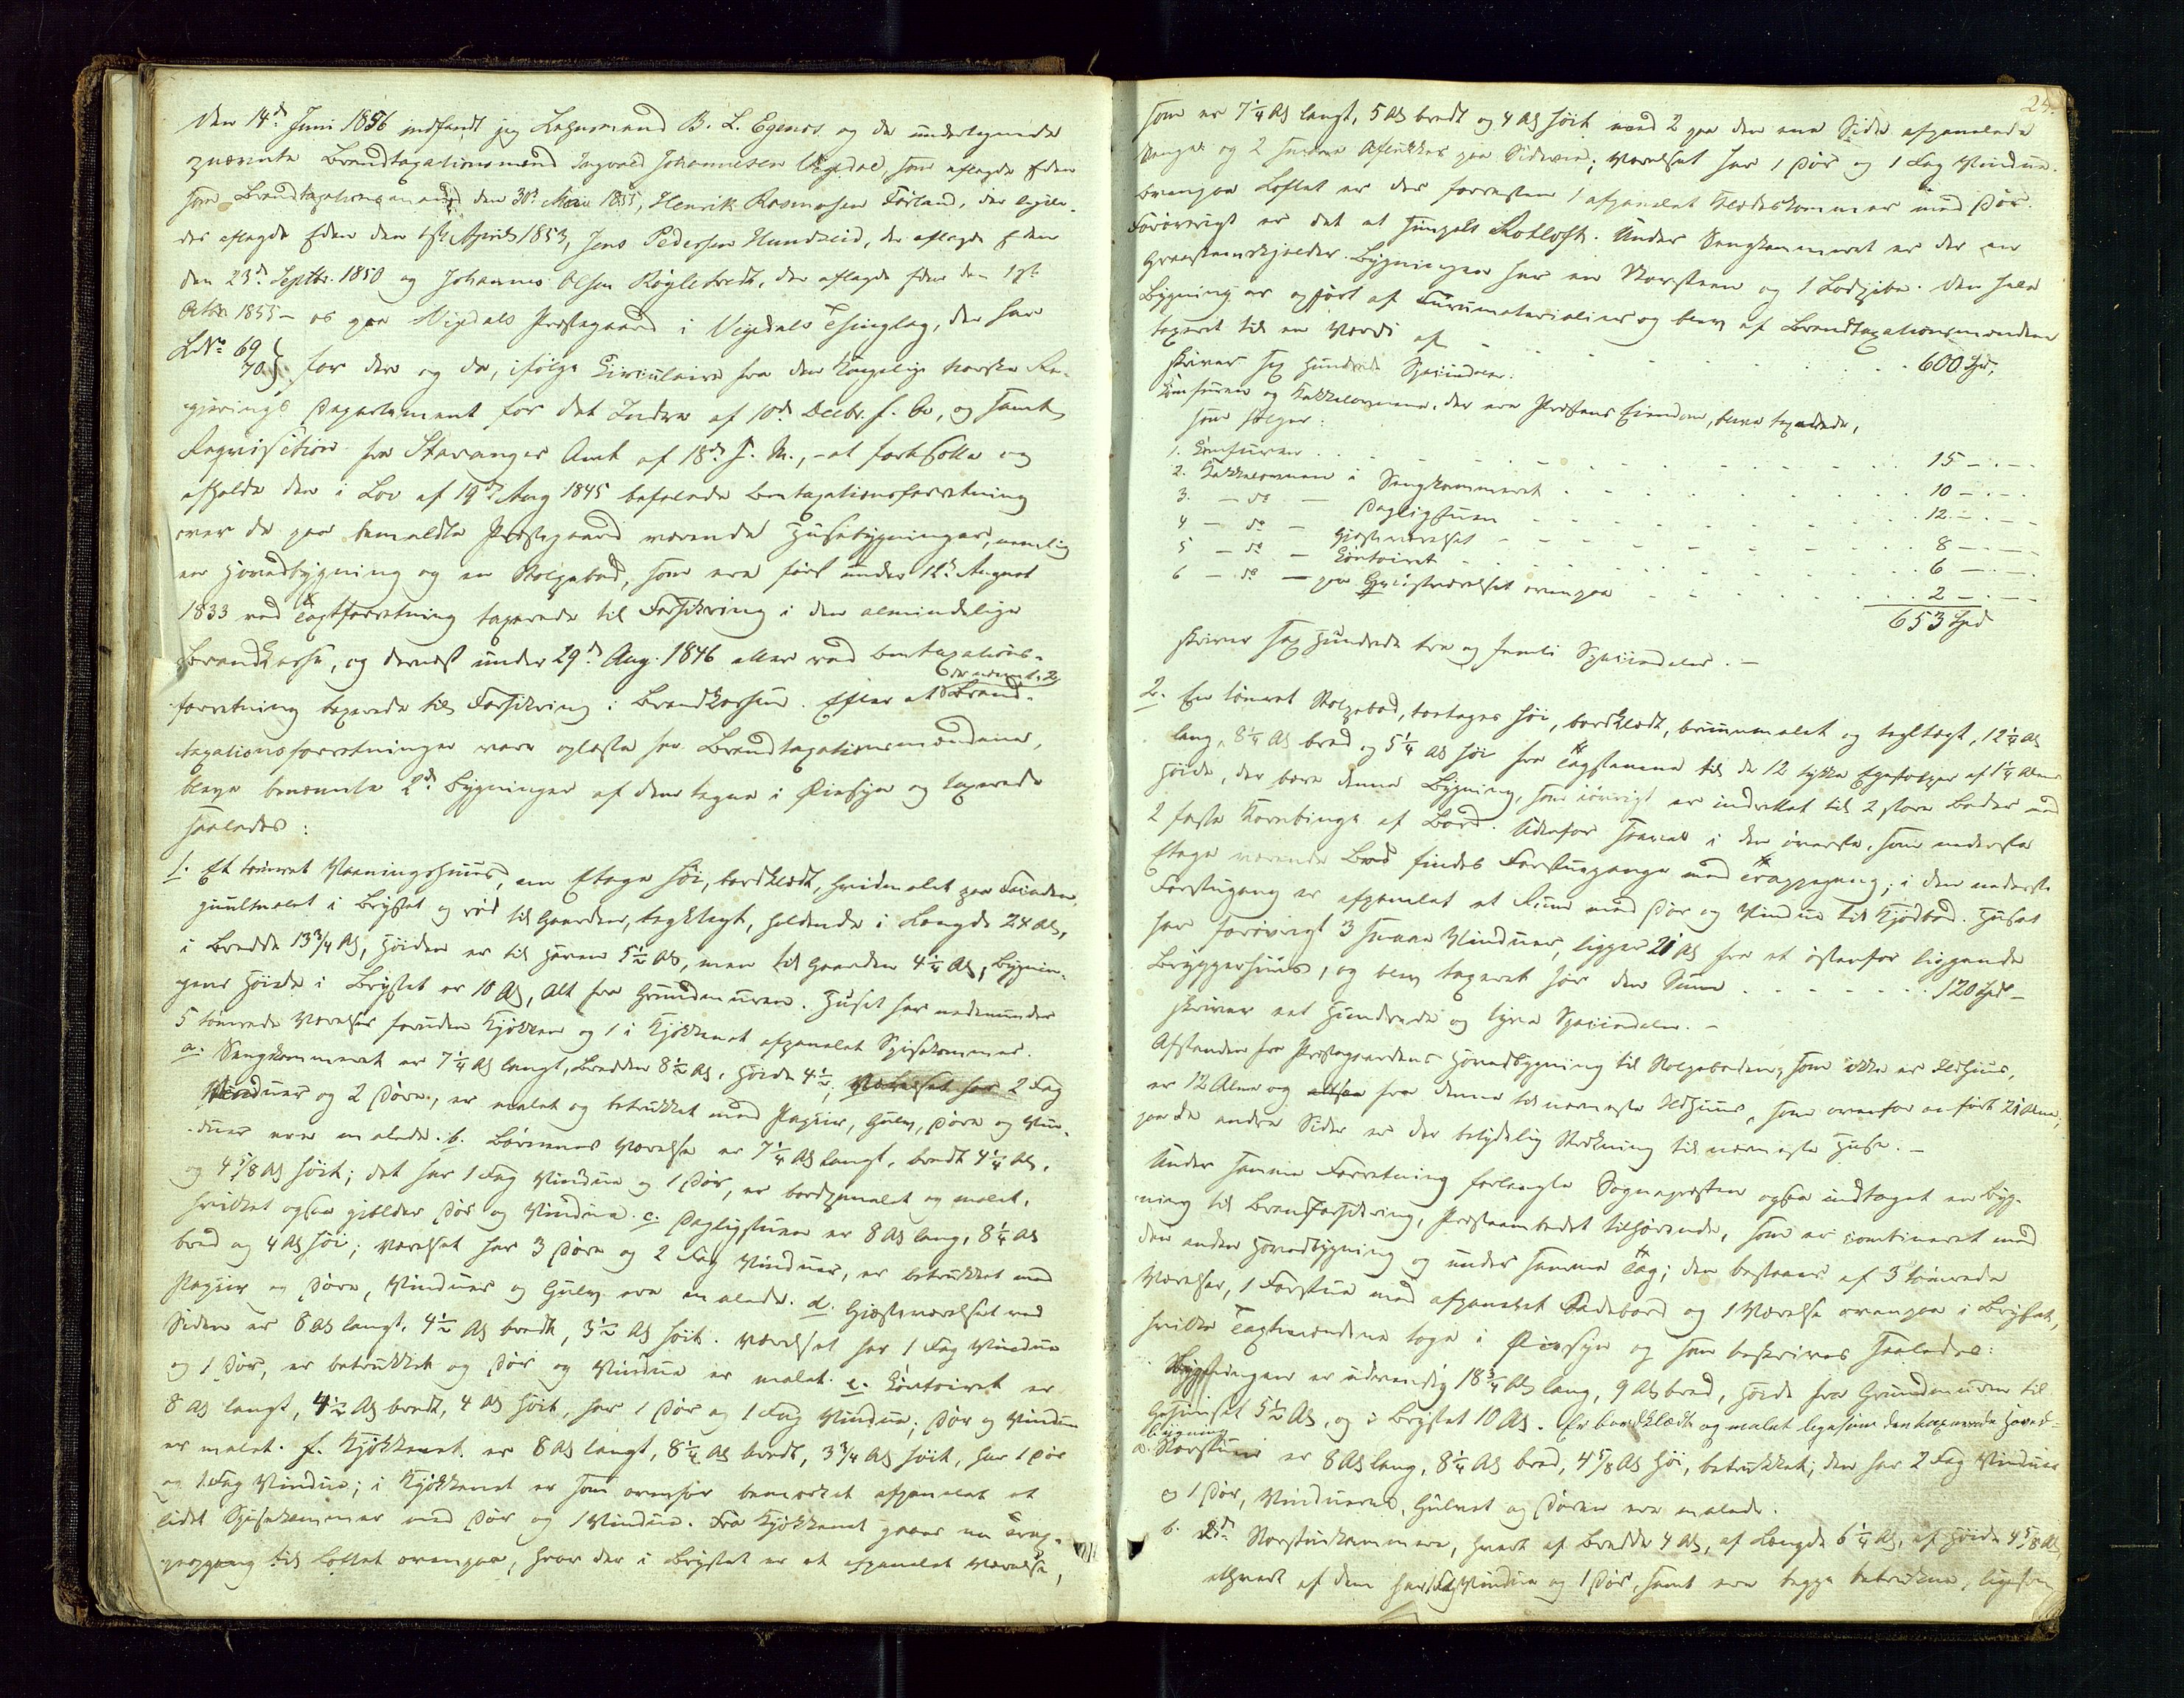 Den 14de Juni 1856 indfandt jeg Lehnsmand B. L. Egenes og de undertegnede
nævnte Brandtaxationsmænd Ingvald Johannesen Vigedal, som aflagde Eden
som Brandtaxationsmand den 30te Mai 1855, Henrik Rasmusen Førland, der ligele-
des aflagde Eden den 1ste April 1853, Jens Pedersen Hundseid, der aflagde Eden
den 23de Septbr. 1850 og Johannes Olsen Røgletvedt, der aflagde Eden den 1ste
Octbr 1855 – os paa Vigedals Præstegaard i Vigedals Thinglag, der har
LNo 69
70 for der og da, ifølge Circulaire fra den Kongelige norske Re-
gjerings Departement for det Indre af 10de Decbr. f. A., og samt
Requisition fra Stavanger Amt af 18de f. M., – at foretholde og
afholde den i Lov af 19de Aug 1845 befalede Omtaxationsforretning
over de paa bemeldte Præstegaard værende Huusebygninger, nemlig
en Hovedbygning og en Stolpebod, som ere først under 12te August
1833 ved Taxtforretning taxerede til Forsikring i den almindelige
Brandkasse, og dernæst under 29de Aug. 1846 atter ved Omtaxations-
forretning taxerede til Forsikring i Brandkassen. Efter at de nævnte 2 Brand-
taxationsforretninger vare oplæste for Brandtaxationsmændene,
bleve benævnte 2de Bygninger af dem tagne i Øiesyn og taxerede
saaledes:
1. Et tømret Vaaningshuus, een Etage høi, bordklædt, hvidmalet paa Fasaden,
guulmalet i Brystet og rød til Gaarden, tegltægt, holdende i Længde 24 Al,
i Bredde 13 3/4 Al, Høiden er til Haven 5 1/2 Al, men til Gaarden 4 1/4 Al, Bygnin-
gens Høide i Brystet er 10 Al, Alt fra Grundmuren. Huset har nedenunder
5 tømrede Værelser foruden Kjøkken og 1 i Kjøkkenet afpanelet Spisekammer.
a. Sengkammeret er 7 1/4 Al langt, Bredden 8 1/2 Al, Høide 4 1/2; Værelset har 2 Fag
Vinduer og 2 Døre, er malet og betrukket med Papiir, Gulv, Døre og Vin-
duer ere malede. b. Børnenes Værelse er 7 1/4 Al langt, bredt 4 1/4 Al,
og 4 5/8 Al høit; det har 1 Fag Vindue og 1 Dør, er bordpanelet og malet,
hvilket ogsaa gjelder Dør og Vindue. c. Dagligstuen er 8 Al lang, 8 1/4 Al
bred og 4 Al høi; Værelset har 3 Døre og 2 Fag Vinduer, er betrukket med
Papiir og Døre, Vinduer og Gulv ere malede. d. Gjæsteværelset ved
Siden er 8 Al langt, 4 1/2 Al bredt, 3 1/2 Al høit. Værelset har 1 Fag Vindue
og 1 Dør, er betrukket og Dør og Vindue er malet. e. Contoiret er
8 Al langt, 4 1/2 Al bredt, 4 Al høit, har 1 Dør og 1 Fag Vindue; Dør og Vindue
er malet. f. Kjøkkenet er 8 Al langt, 8 1/4 Al bredt, 3 3/4 Al høit, har 1 Dør
og 1 Fag Vindue; i Kjøkkenet er som ovenfor bemærket afpanelet et
lidet Spisekammer med Dør og 1 Vindue. Fra Kjøkkenet gaaer en Trap-
peopgang til Loftet ovenpaa, hvor der i Brystet er et afpanelet Værelse,
24.
som er 7 1/4 Al langt, 5 Al bredt og 4 Al høit med 2 paa den ene Side afpanelede
Senge og 2 smaae Aflukker paa Siderne; Værelset har 1 Dør og 1 Fag Vindue.
Ovenpaa Loftet er der forresten 1 afpanelet Klædeskammer med Dør.
Forøvrigt er det et simpelt Rokloft. Under Sengkammeret er der en
Graasteenskjælder. Bygningen har en Skorsteen og 1 Lodpibe. Den hele
Bygning er opført af Furumaterialier og blev af Brandtaxationsmændene
taxeret til en Værdi af 600 Spd,
skriver sex Hundrede Speciedaler.
Comfuren og Kakkelovnene, der ere Præstens Eiendom, bleve taxerede,
som følger:
1. Comfuren 15 –
2. Kakkelovnen i Sengkammeret 10 –
3. – do – Dagligstuen 12 –
4 – do – Gjæsteværelset 8 –
5 – do – Contoiret 6 –
6 – do – paa Gjæsteværelset ovenpaa 2 –
653 Spd
skriver sex Hundrede tre og femti Speciedaler. –
2. En tømret Stolpebod, toetages høi, bordklædt, bruunmalet og tegltægt, 12 1/4 Al
lang, 8 1/4 Al bred og 5 1/4 Al høi fra Tagskjæget til de 12 tykke Egestolper af 1 1/4 Alens
Høide, der bære denne Bygning, som iøvrigt er indrettet til 2 store Boder med
2 faste Kornbinge af Bord. Udenfor saavel i den øverste, som nederste
Etage værende Bod findes Forstuegange med Trappegang; i den nederste
Forstugang er afpanelet et Rum med Dør og Vindue til Kjødbod. Huset
har forøvrigt 3 smaae Vinduer, ligger 21 Al fra et østenfor liggende
Bryggerhuus, og blev taxeret for den Sum 120 Spd –
skriver eet Hundrede og tyve Speciedaler. –
Afstanden fra Præstegaardens Hovedbygning til Stolpeboden, som ikke er Ildhuus,
er 12 Alen og altsaa fra denne til nærmeste Ildhuus, som ovenfor anført 21 Alen,
paa de andre Sider er der betydelig Strækning til nærmeste Huse. –
Under samme Forretning forlangte Sognepræsten ogsaa indtaget en Byg-
ning til Brandforsikring, Præsteembedet tilhørende, som er combineret med
den anden Hovedbygning og under samme Tag; den bestaaer af 3 tømrede
Værelser, 1 Forstue med afpanelet Fadebord og 1 Værelse ovenpaa i Brystet,
hvilke Taxtmændene toge i Øiesyn og som beskrives saaledes:
Bygningen er udvendig 18 3/4 Al lang, 9 Al bred, Høide fra Grundmuren til
Gesimset 5 1/2 Al, og i Brystet 10 Al. Er bordklædt og malet ligesom den taxerede Hoved-
bygning
a. Storstuen er 8 Al lang, 8 1/4 Al bred, 4 5/8 Al høi, betrukket; den har 2 Fag Vinduer
og 1 Dør, Vinduerne, Gulvet og Døren ere malede.
b. 2de Storstuekammere, hvert af Bredde 4 Al, af Længde 6 1/4 Al, af Høide 4 5/8 Al,
ethvert af dem har 1 Fag Vindue og 1 Dør, samt ere begge betrukne, ligesom